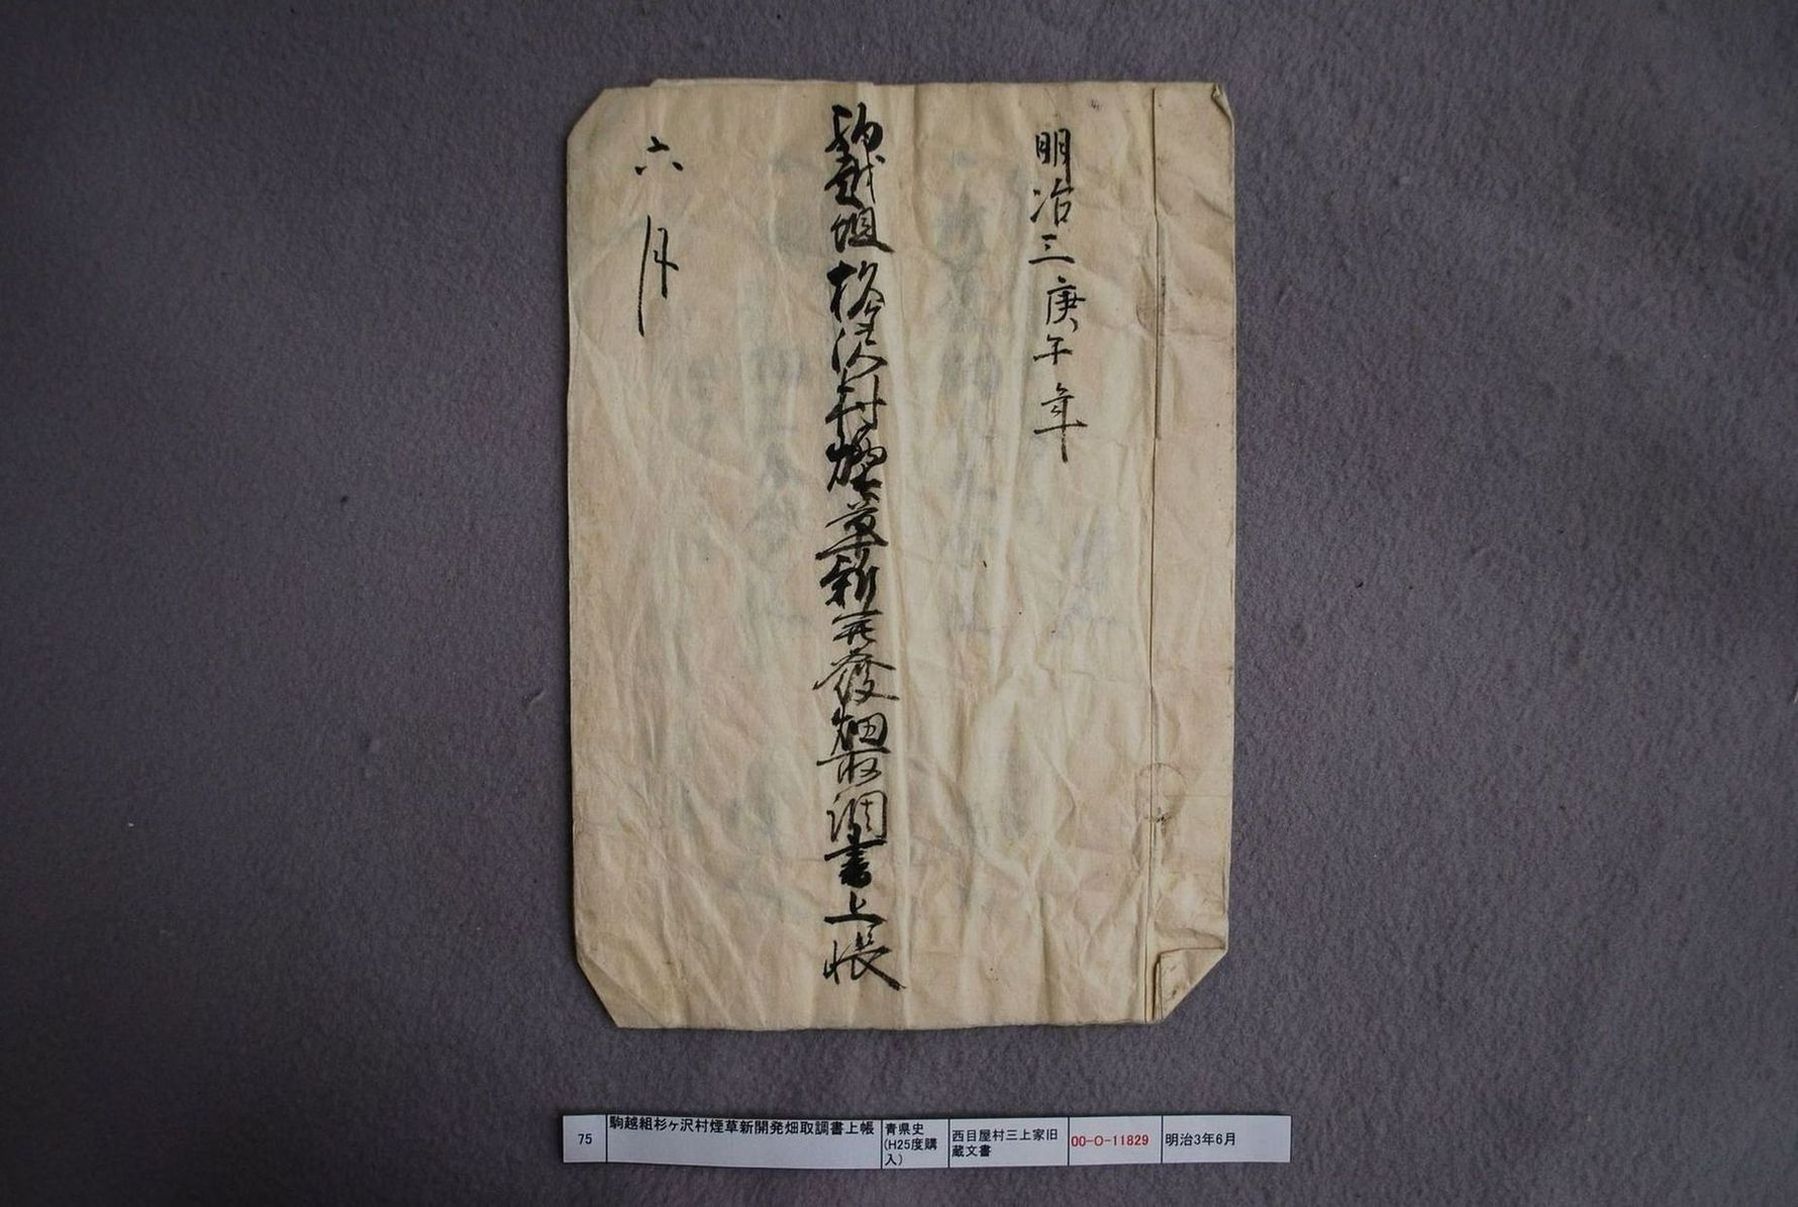 明治三庚午年
駒越組杉ヶ沢村煙草新開發畑取調書上帳
六月
75
駒越組杉ヶ沢村煙草新開発畑取調書上帳
青県史
(H25度購
入)
西目屋村三上家旧
蔵文書
00-O-11829
明治3年6月